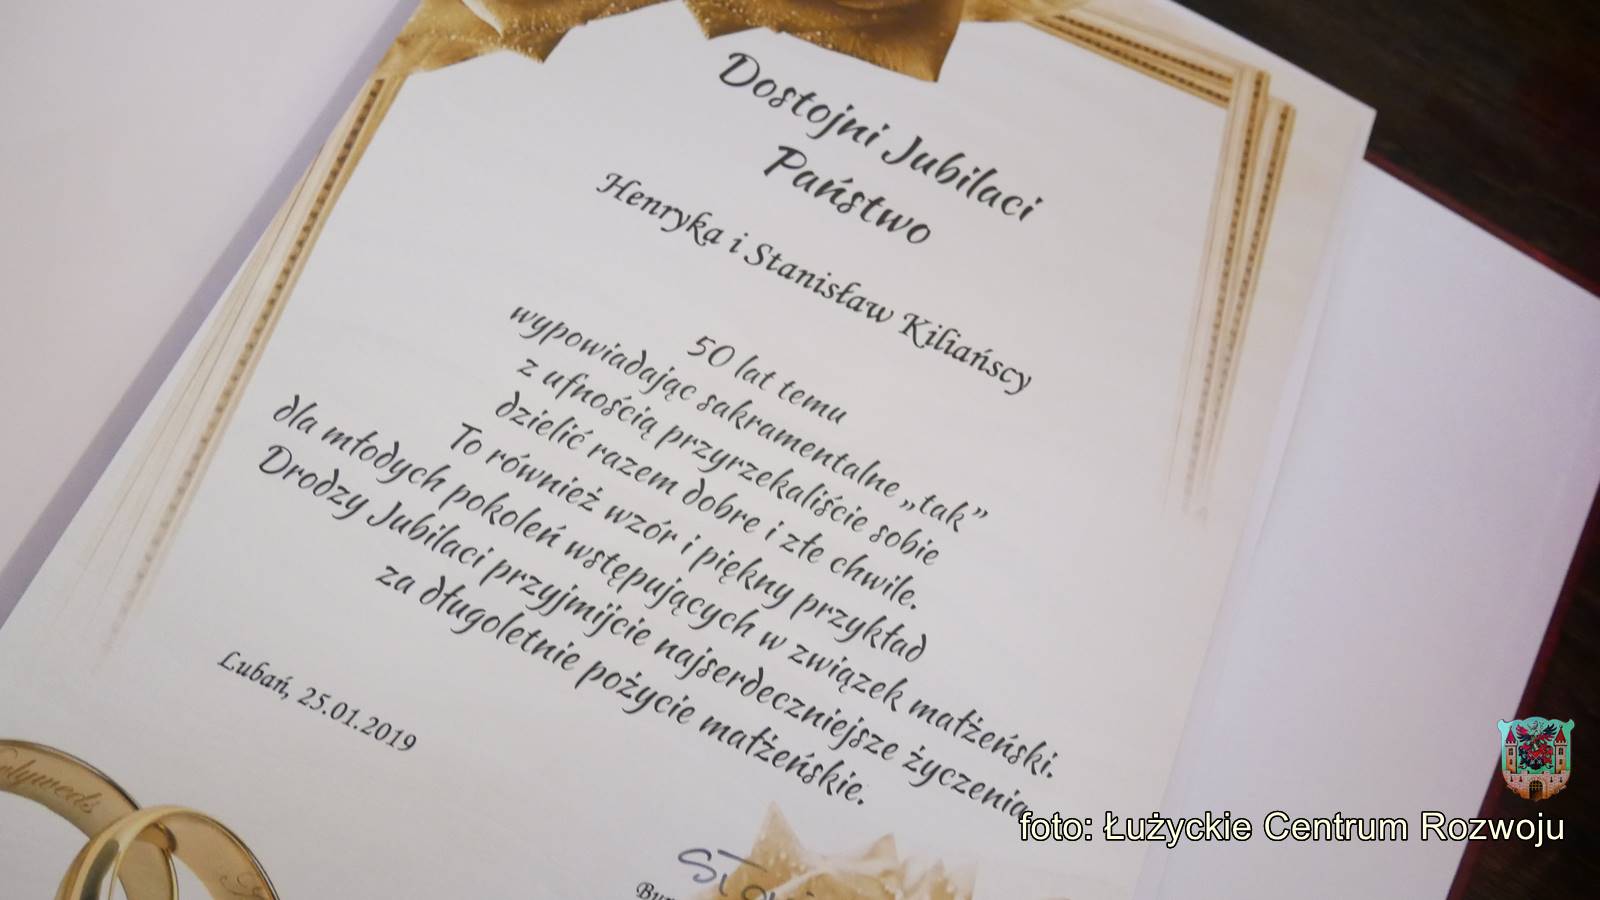 Dostojni Jubilaci
Państwo
Henryka i Stanisław Kiliańscy
50 lat temu
wypowiadając sakramentalne „tak”
z ufnością przyrzekaliście sobie
dzielić razem dobre i złe chwile.
To również wzór i piękny przykład
dla młodych pokoleń wstępujących w związek małżeński.
Drodzy Jubilaci przyjmijcie najserdeczniejsze życzenia
za długoletnie pożycie małżeńskie.
Lubań, 25.01.2019
foto: Łużyckie Centrum Rozwoju